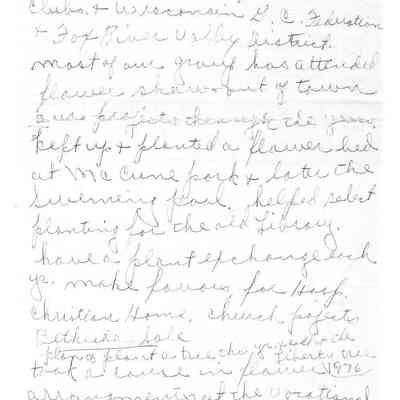 Clubs. & Wisconsin G. C. Federation
& Fox River Vally District.
most of our group has attended
flower shows out of town
our projects through the years
kept up & planted a flower bed
at McCune park & later the
Swimming Pool. helped select
planting for the old Library.
have a plant exchange each
yr. make favors for Hosp.
Christian Home. Church projects
Bethesda Sale
plan & plant a tree this yr.
took a course in flower 1976
arrangements at the Vocational